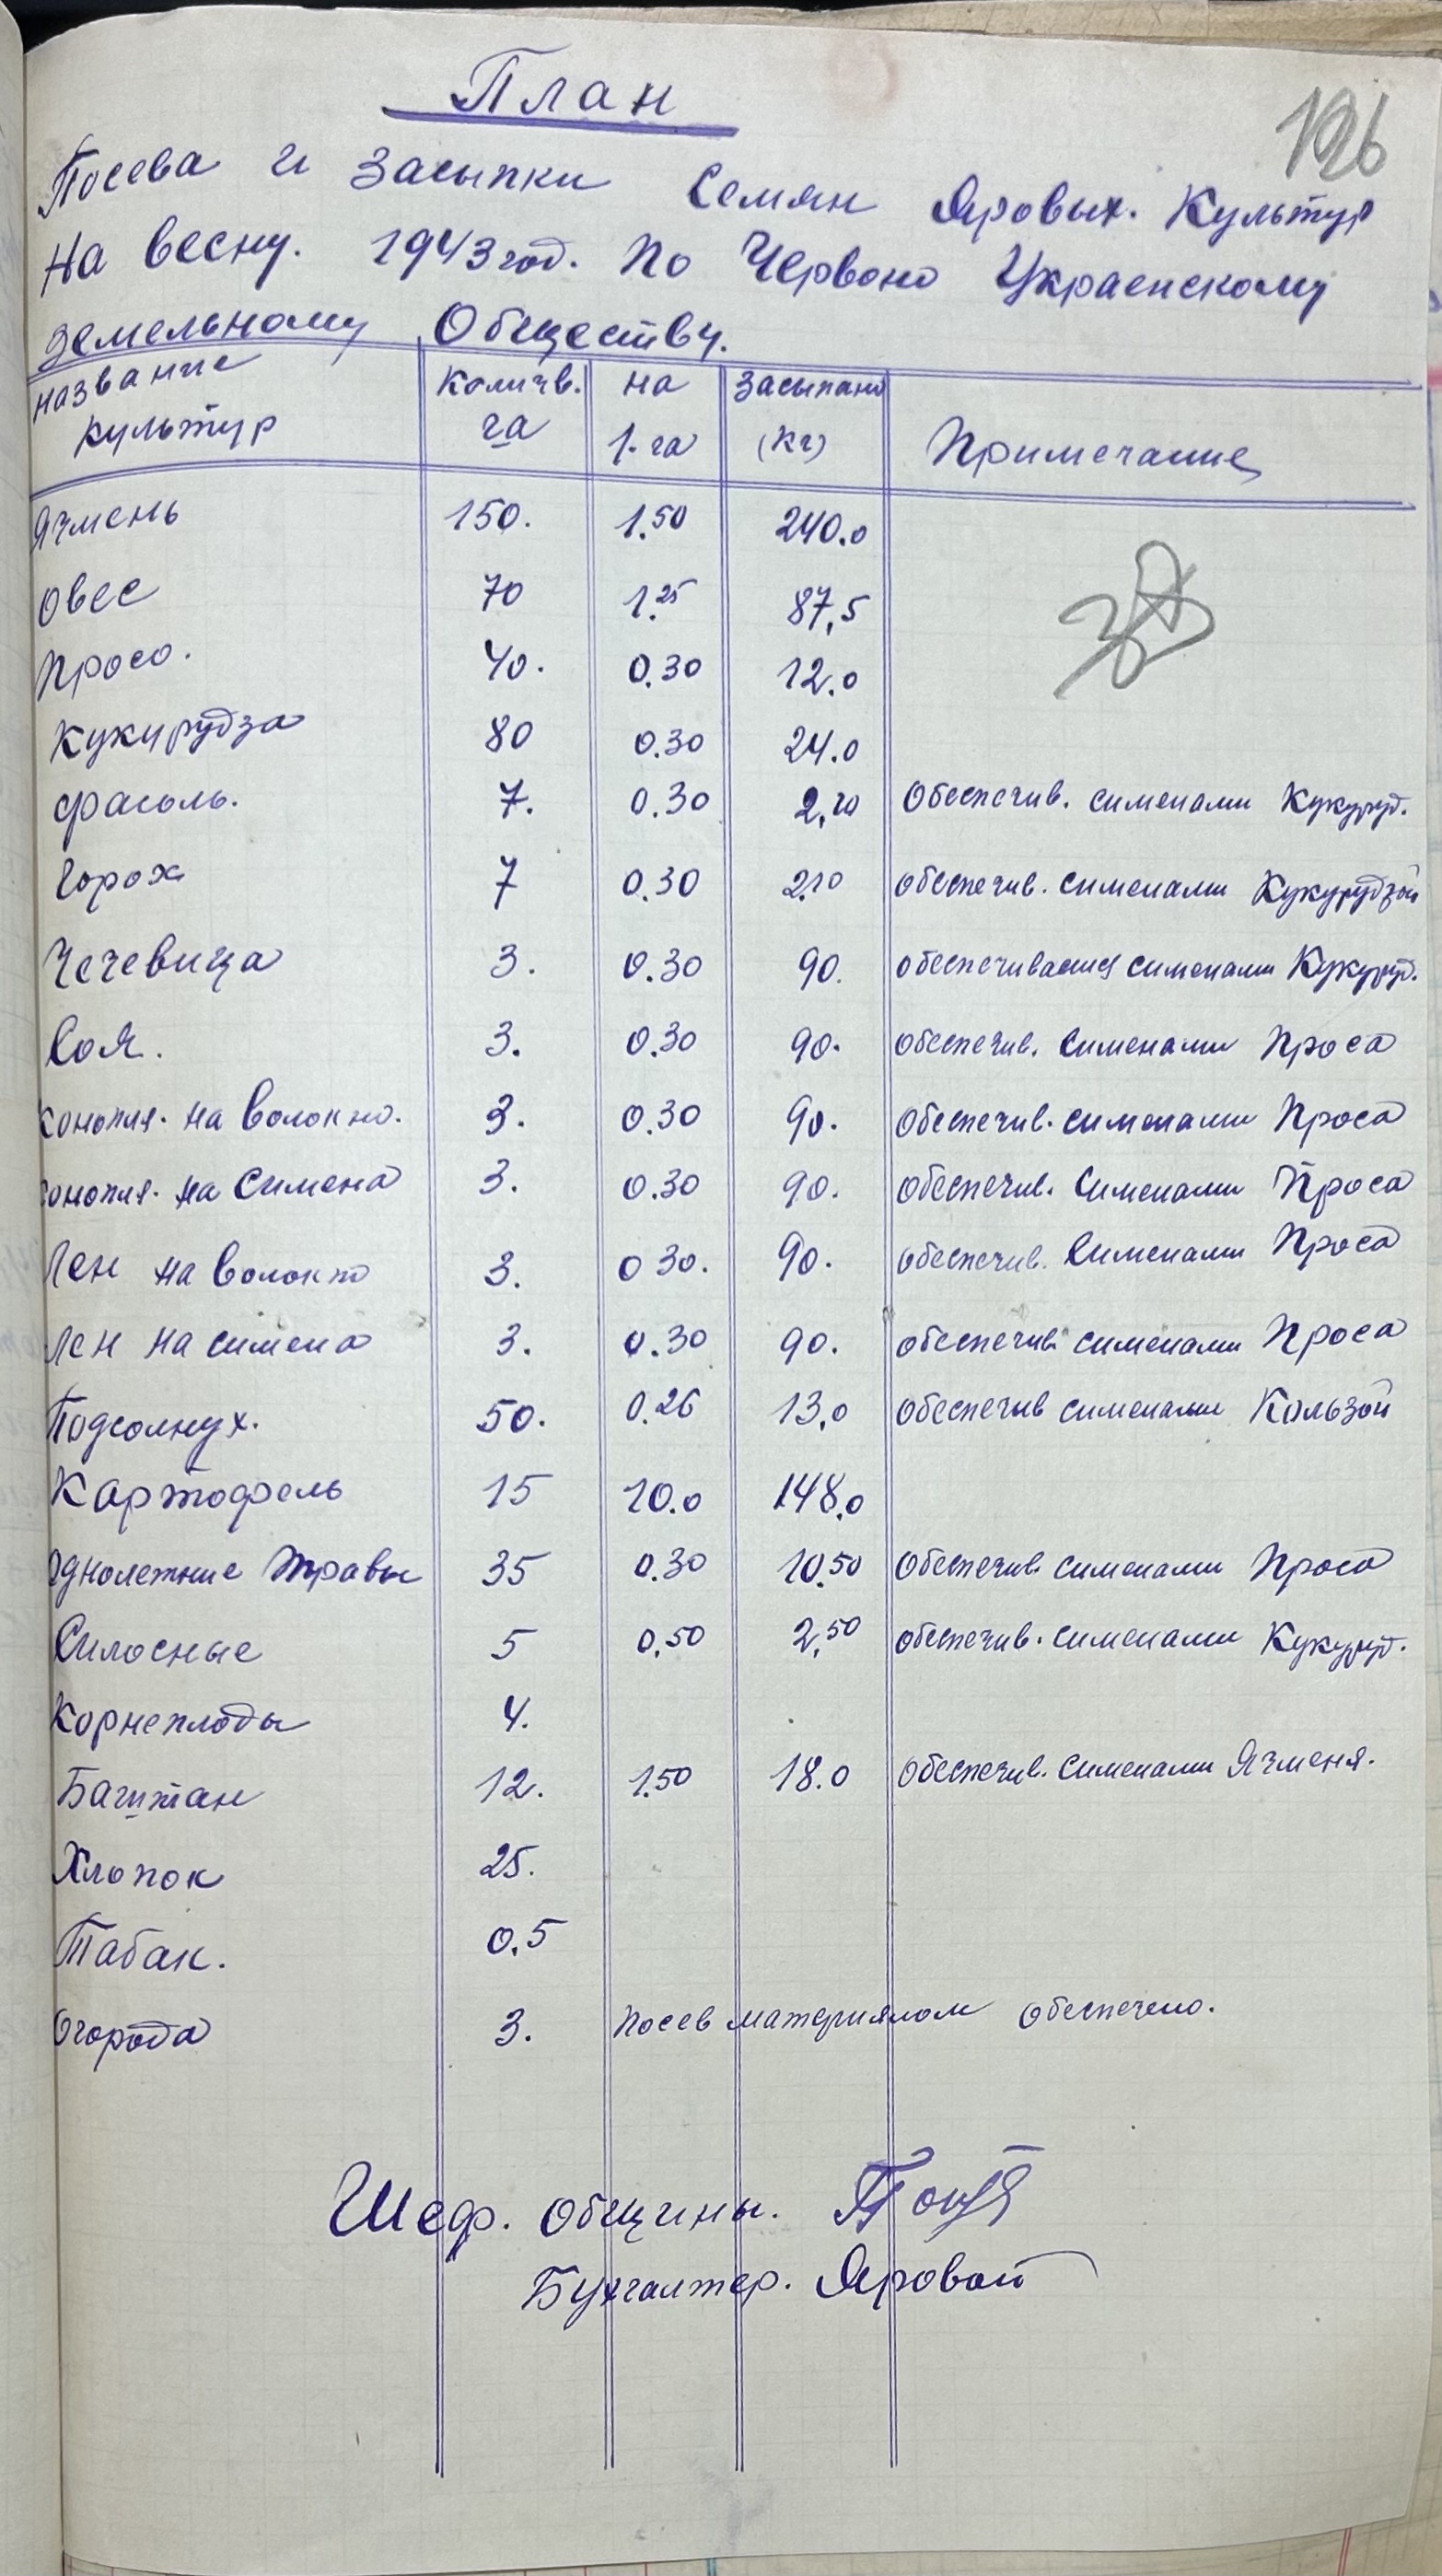 План
126
Посева и Засыпки Семян Яровых. Культур
На весну. 1943 год. по Червоно Украенскому
Земельному Обществу.
название культур | Количв. га | на 1. га | Засыпано (кг) | Примечание
Ячмень 150. 1.50 240.0
Овес 70 1.25 87,5
Просо. 40. 0.30 12.0
Кукурудза 80 0.30 24.0
фасоль. 7. 0.30 2,10 Обеспечив. сименами Кукуруд.
Горох 7 0.30 2,10 обеспечив. сименами Кукурудзой
Чечевица 3. 0.30 90. обеспечивается сименами Кукуруд.
Соя. 3. 0.30 90. обеспечив. Сименами Проса
конопля. на Волокно. 3. 0.30 90. обеспечив. сименами Проса
конопля. на Симена 3. 0.30 90. обеспечив. Сименами Проса
Лен на Волокно 3. 0 30. 90. обеспечив. Сименами Проса
Лен на симена 3. 0.30 90. обеспечив. сименами Проса
Подсолнух. 50. 0.26 13,0 обеспечив сименами Кользой
Картофель 15 10.0 148,0
Однолетние Травы 35 0.30 10.50 Обеспечив. сименами Проса
Силосные 5 0,50 2,50 обеспечив. сименами Кукуруд.
Корнеплоды 4.
Багштан 12. 1.50 18.0 обеспечив. Сименами Ячменя.
Хлопок 25.
Табак. 0,5
Огорода 3. посев материялом обеспечено.
Шеф. общины.
Бухгалтер. Яровой